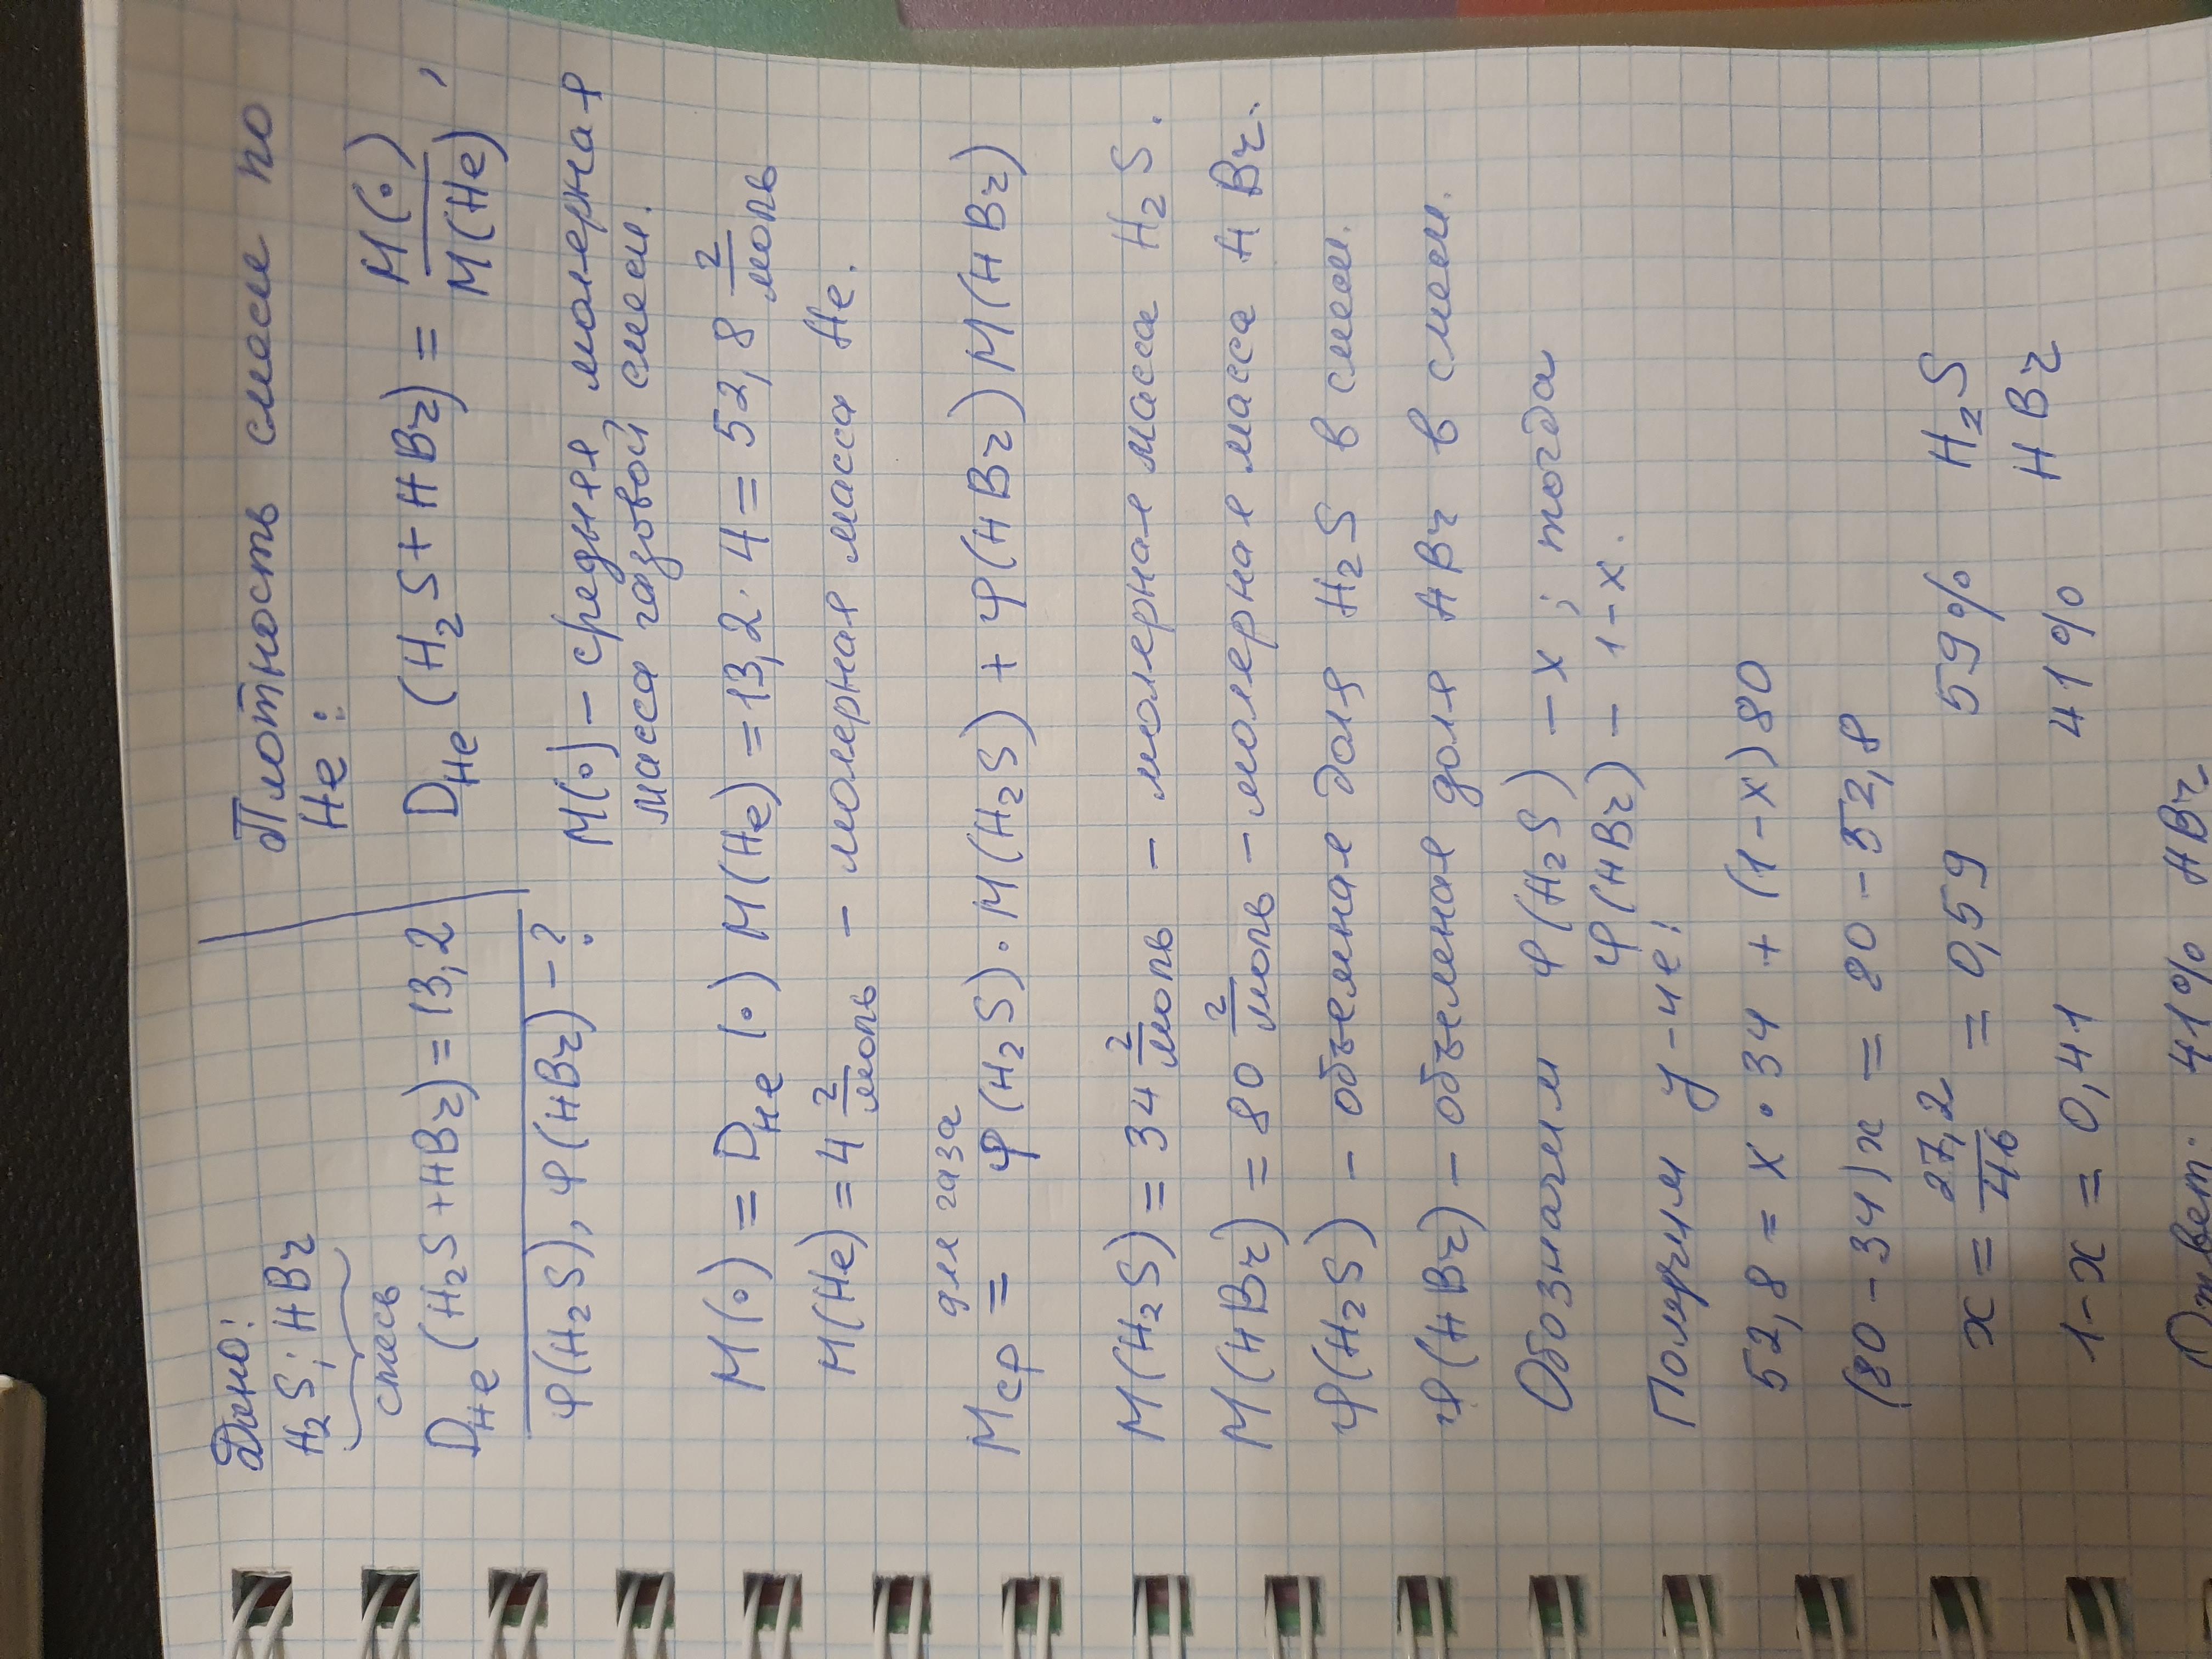 Дано:
H₂S; HBr
смесь
D_He (H₂S+HBr)=13,2
φ(H₂S), φ(HBr) - ?
Плотность смеси по
He:
D_He (H₂S + HBr) = M(·)/M(He) ,
M(·) - средняя молярная
масса газовой смеси.
M(·) = D_He (·) M(He) = 13,2 · 4 = 52,8 г/моль
M(He) = 4 г/моль - молярная масса He.
для газа
Mср = φ(H₂S) · M(H₂S) + φ(HBr) M(HBr)
M(H₂S) = 34 г/моль - молярная масса H₂S.
M(HBr) = 80 г/моль - молярная масса HBr.
φ(H₂S) - объемная доля H₂S в смеси.
φ(HBr) - объемная доля HBr в смеси.
Обозначим φ(H₂S) - x ; тогда
φ(HBr) - 1-x.
Получим у-ие:
52,8 = x · 34 + (1-x) 80
(80-34) x = 80 - 52,8
x = 27,2/46 = 0,59 59% H₂S
1-x = 0,41 41% HBr
Ответ: 41% HBr